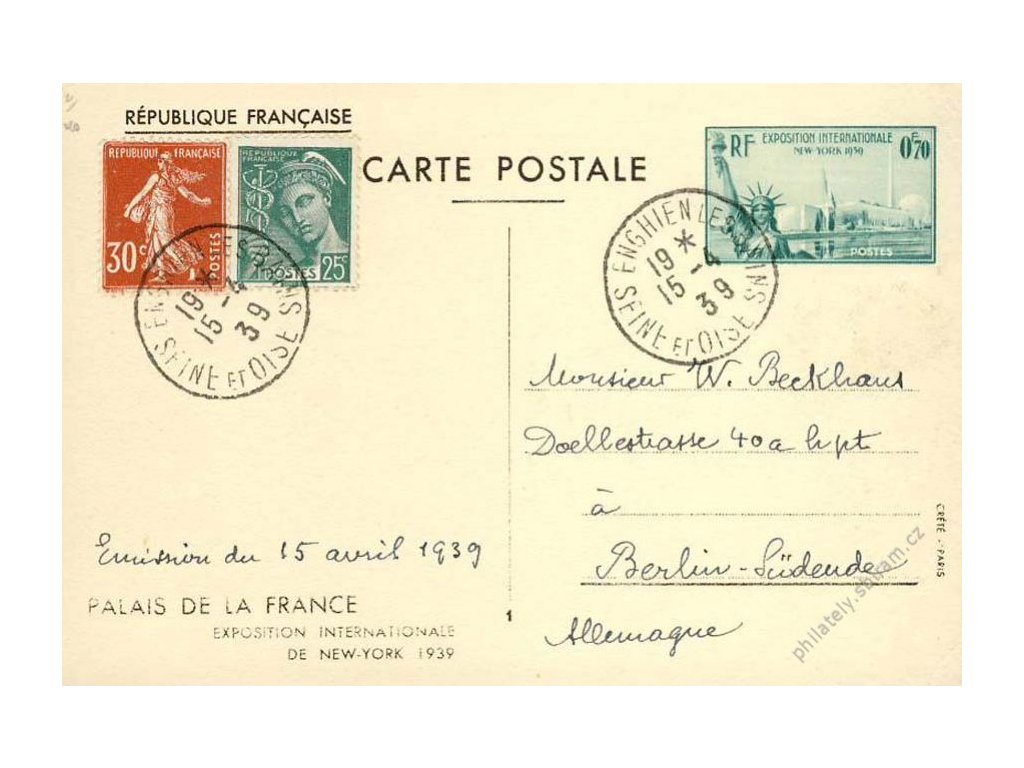 RÉPUBLIQUE FRANÇAISE
CARTE POSTALE
REPUBLIQUE FRANÇAISE
30c
POSTES
REPUBLIQUE
FRANÇAISE
POSTES 25c
RF EXPOSITION INTERNATIONALE
NEW-YORK 1939
0F,70
POSTES
ENGHIEN LES BAINS
19 *
15 -4
39
SEINE ET OISE
ENGHIEN LES BAINS
19 *
15 -4
39
SEINE ET OISE
Monsieur W. Beckhaus
Doellestrasse 40a hpt
à
Berlin-Südende
Allemagne
Emission du 15 avril 1939
PALAIS DE LA FRANCE
EXPOSITION INTERNATIONALE
DE NEW-YORK 1939
1
CRÉTÉ - PARIS
philately.sbiram.cz